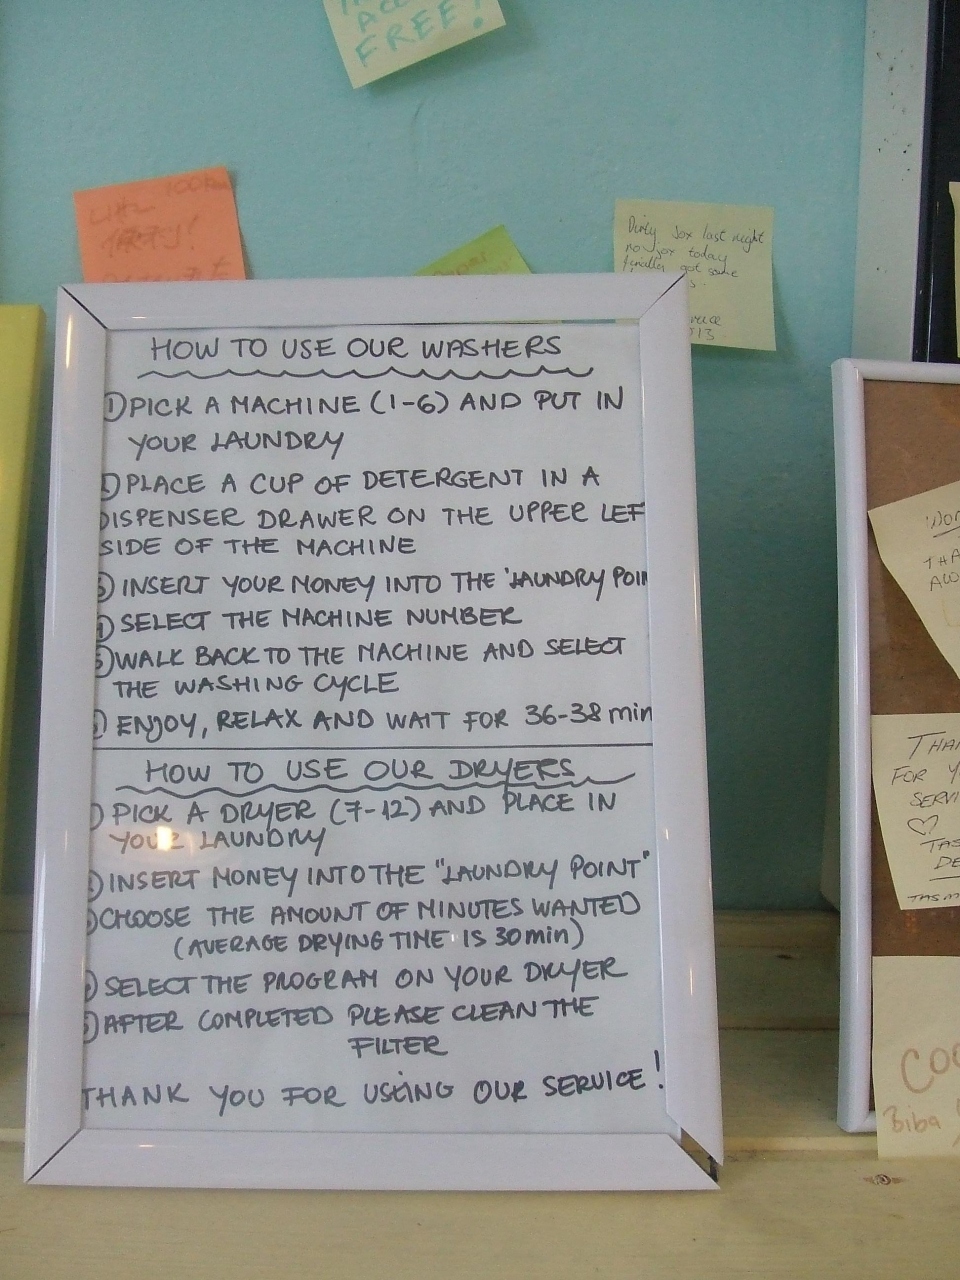 FREE!
Dirty Sox last night
no sox today
finally got some
HOW TO USE OUR WASHERS
① PICK A MACHINE (1-6) AND PUT IN
YOUR LAUNDRY
② PLACE A CUP OF DETERGENT IN A
DISPENSER DRAWER ON THE UPPER LEF
SIDE OF THE MACHINE
③ INSERT YOUR MONEY INTO THE 'LAUNDRY POIN
④ SELECT THE MACHINE NUMBER
⑤ WALK BACK TO THE MACHINE AND SELECT
THE WASHING CYCLE
⑥ ENJOY, RELAX AND WAIT FOR 36-38 min
HOW TO USE OUR DRYERS
① PICK A DRYER (7-12) AND PLACE IN
YOUR LAUNDRY
② INSERT MONEY INTO THE "LAUNDRY POINT"
③ CHOOSE THE AMOUNT OF MINUTES WANTED
(AVERAGE DRYING TIME IS 30 min)
④ SELECT THE PROGRAM ON YOUR DRYER
⑤ AFTER COMPLETED PLEASE CLEAN THE
FILTER
THANK YOU FOR USING OUR SERVICE!
THAN
FOR Y
SERVI
TAS
DE
TASM
COO
Biba